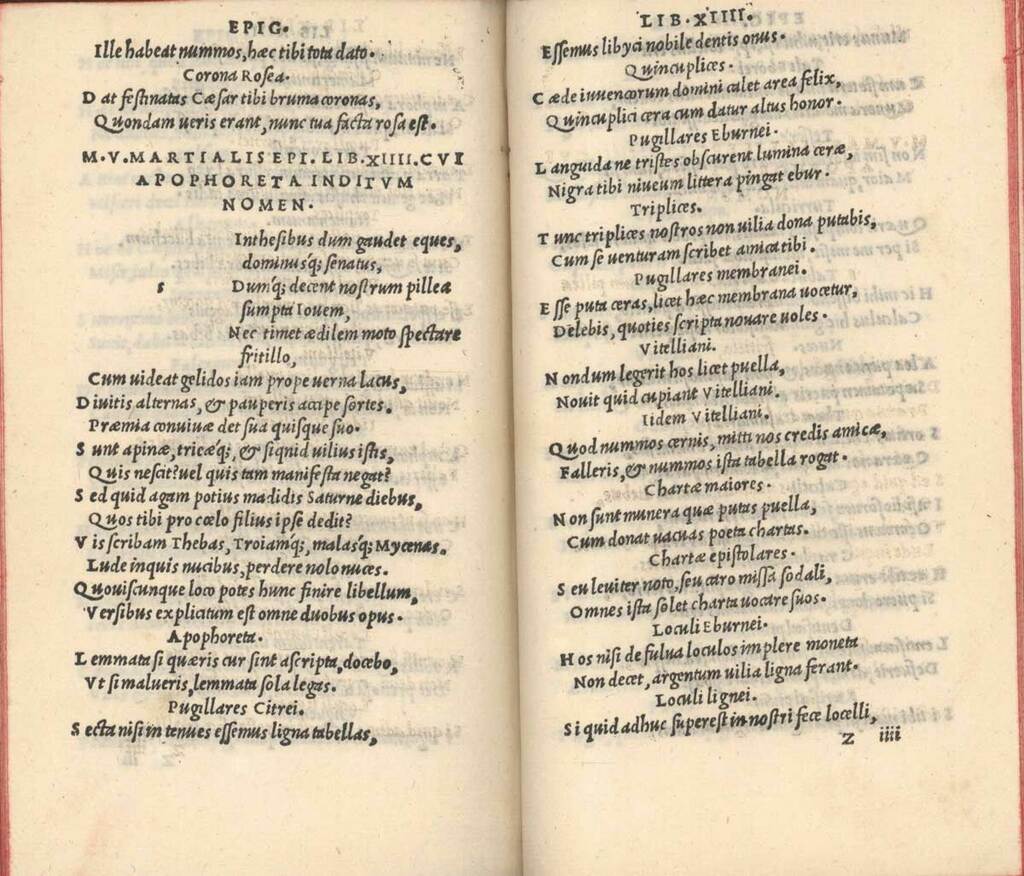 EPIG.
Ille habeat nummos, hæc tibi tota dato.
Corona Rosea.
D at festinatas Cæsar tibi bruma coronas,
Quondam ueris erant, nunc tua facta rosa est.
M.V.MARTIALIS EPI. LIB.XIIII.CVI
APOPHORETA INDITVM
NOMEN.
Inthesibus dum gaudet eques,
dominusq́; senatus,
s Dumq́; decent nostrum pillea
sumpta Iouem,
Nec timet ædilem moto spectare
fritillo,
Cum uideat gelidos iam prope uerna lacus,
D iuitis alternas, & pauperis accipe sortes.
Præmia conuiuæ det sua quisque suo.
S unt apinæ, tricæq́;, & siquid uilius istis,
Quis nescit? uel quis tam manifesta negat?
S ed quid agam potius madidis Saturne diebus,
Quos tibi pro cœlo filius ipse dedit?
V is scribam Thebas, Troiamq́;, malasq́; Mycenas.
Lude inquis nucibus, perdere nolo nuces.
Quouiscunque loco potes hunc finire libellum,
Versibus explicitum est omne duobus opus.
Apophoreta.
L emmata si quæris cur sint ascripta, docebo,
Vt si malueris, lemmata sola legas.
Pugillares Citrei.
S ecta nisi in tenues essemus ligna tabellas,
LIB.XIIII.
Essemus libyci nobile dentis onus.
Quincuplices.
C æde iuuencorum domini calet area felix,
Quincuplici cera cum datur altus honor.
Pugillares Eburnei.
L anguida ne tristes obscurent lumina ceræ,
Nigra tibi niueum littera pingat ebur.
Triplices.
T unc triplices nostros non uilia dona putabis,
Cum se uenturam scribet amica tibi.
Pugillares membranei.
E sse puta ceras, licet hæc membrana uocetur,
Delebis, quoties scripta nouare uoles.
Vitelliani.
N ondum legerit hos licet puella,
Nouit quid cupiant Vitelliani.
Iidem Vitelliani.
Quod nummos cernis, mitti nos credis amicæ,
Falleris, & nummos ista tabella rogat.
Chartæ maiores.
N on sunt munera quæ putas puella,
Cum donat uacuas poeta chartas.
Chartæ epistolares.
S eu leuiter noto, seu caro missa sodali,
Omnes ista solet charta uocare suos.
Loculi Eburnei.
H os nisi de fulua loculos implere moneta
Non decet, argentum uilia ligna ferant.
Loculi lignei.
Si quid adhuc superest in nostri fece locelli,
Z iiii